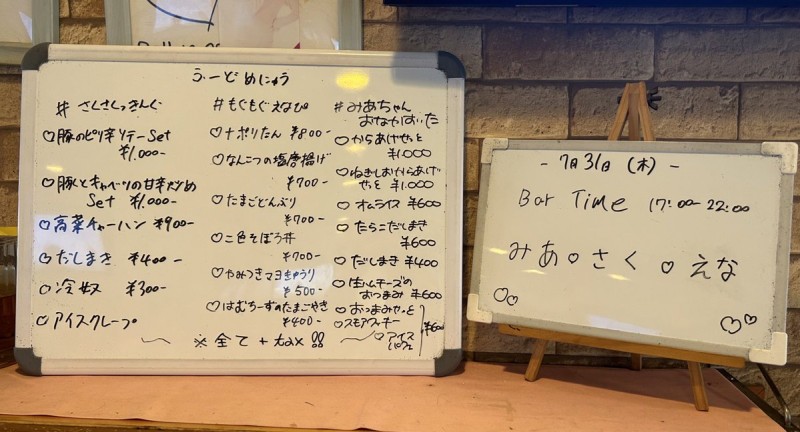 ふーどめにゅう
# さくさくっきんぐ
♡豚のピリ辛ソテーSet
¥1,000-
♡豚とキャベツの甘辛炒め
Set ¥1,000-
♡高菜チャーハン ¥900-
♡だしまき ¥400-
♡冷奴 ¥300-
♡アイスクレープ
#もぐもぐえなぴ
♡ナポリたん ¥800-
♡なんこつの塩唐揚げ
¥700-
♡たまごどんぶり
¥700-
♡二色そぼろ丼
¥700-
♡やみつきマヨきゅうり
¥500-
♡はむちーずのたまごやき
¥400-
#みあちゃん
おなかぱいた
♡からあげせっと
¥1000
♡ねぎしおからあげ
せっと ¥1,000
♡オムライス ¥600
♡たらこだしまき
¥600
♡だしまき ¥400
♡生ハムチーズの
おつまみ ¥600
♡おつまみせっと
♡スモアクッキー
¥600
♡アイス
パフェ
※全て+tax!!
- 7月31日 (木) -
Bar Time 17:00-22:00
みあ♡さく♡えな